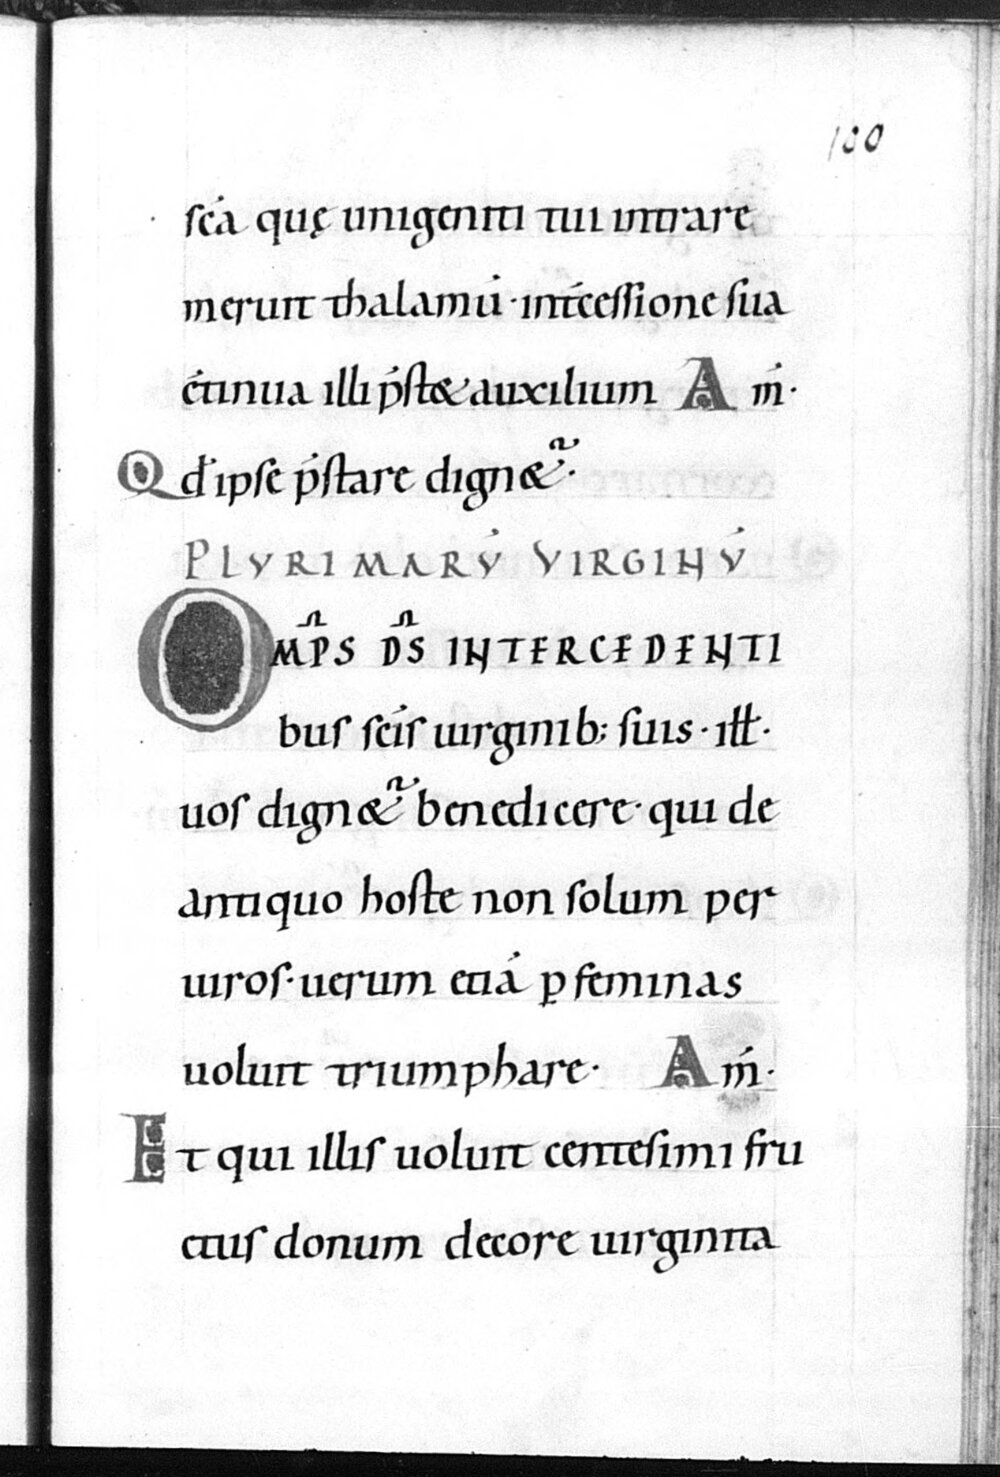 180
sc̄a quę unigeniti tui intrare
meruit thalamū· int̄cessione sua
c̄tinua illi p̄st& auxilium Am̄·
Qd̄ ipse p̄stare dign&ᷣ·
PLVRIMARV̄ VIRGINV̄
OMP̄S D̄S INTERCEDENTI
bus sc̄is uirginib; suis· iłł·
uos dign&ᷣ benedicere· qui de
antiquo hoste non solum per
uiros· uerum etiā ꝑ feminas
uoluit triumphare· Am̄·
Et qui illis uoluit centesimi fru
ctus donum decore uirginita